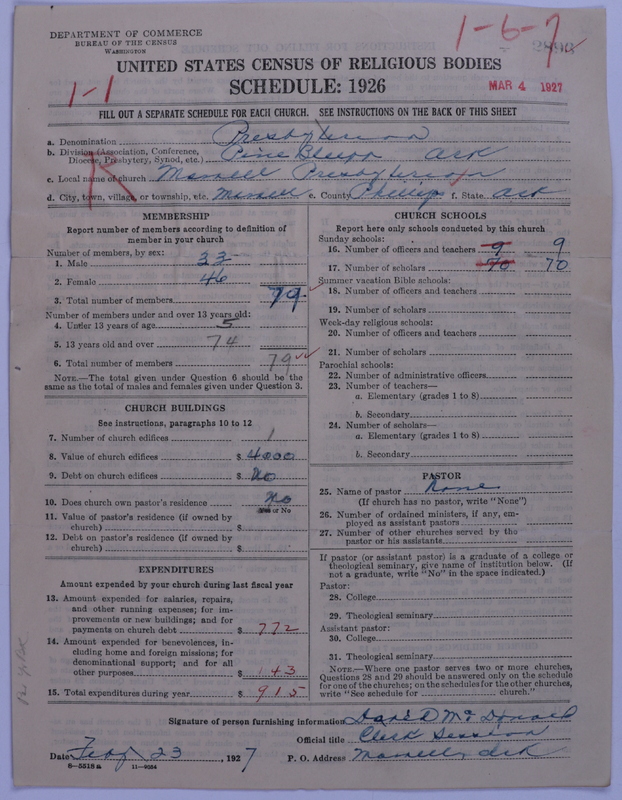 DEPARTMENT OF COMMERCE
BUREAU OF THE CENSUS
WASHINGTON
1-6-7
UNITED STATES CENSUS OF RELIGIOUS BODIES
SCHEDULE: 1926
1-1
MAR 4 1927
FILL OUT A SEPARATE SCHEDULE FOR EACH CHURCH. SEE INSTRUCTIONS ON THE BACK OF THIS SHEET
a. Denomination Presbyterian
b. Division (Association, Conference, Diocese, Presbytery, Synod, etc.) Pine Bluff Ark
c. Local name of church Marvell Presbyterian
d. City, town, village, or township, etc. Marvell e. County Phillips f. State Ark
R
MEMBERSHIP
Report number of members according to definition of member in your church
Number of members, by sex:
1. Male 33
2. Female 46
3. Total number of members 79
Number of members under and over 13 years old:
4. Under 13 years of age 5
5. 13 years old and over 74
6. Total number of members 79
NOTE.—The total given under Question 6 should be the same as the total of males and females given under Question 3.
CHURCH BUILDINGS
See instructions, paragraphs 10 to 12
7. Number of church edifices 1
8. Value of church edifices $ 4000
9. Debt on church edifices $ No
10. Does church own pastor's residence No
Yes or No
11. Value of pastor's residence (if owned by church) $
12. Debt on pastor's residence (if owned by church) $
EXPENDITURES
Amount expended by your church during last fiscal year
13. Amount expended for salaries, repairs, and other running expenses; for improvements or new buildings; and for payments on church debt $ 772
14. Amount expended for benevolences, including home and foreign missions; for denominational support; and for all other purposes $ 143
15. Total expenditures during year $ 915
CHURCH SCHOOLS
Report here only schools conducted by this church
Sunday schools:
16. Number of officers and teachers 9 9
17. Number of scholars 70 70
Summer vacation Bible schools:
18. Number of officers and teachers
19. Number of scholars
Week-day religious schools:
20. Number of officers and teachers
21. Number of scholars
Parochial schools:
22. Number of administrative officers
23. Number of teachers—
a. Elementary (grades 1 to 8)
b. Secondary
24. Number of scholars—
a. Elementary (grades 1 to 8)
b. Secondary
PASTOR
25. Name of pastor None
(If church has no pastor, write "None")
26. Number of ordained ministers, if any, employed as assistant pastors
27. Number of other churches served by the pastor or his assistants
If pastor (or assistant pastor) is a graduate of a college or theological seminary, give name of institution below. (If not a graduate, write "No" in the space indicated.)
Pastor:
28. College
29. Theological seminary
Assistant pastor:
30. College
31. Theological seminary
NOTE.—Where one pastor serves two or more churches, Questions 28 and 29 should be answered only on the schedule for one of the churches; on the schedules for the other churches, write "See schedule for church."
Signature of person furnishing information David McDonald
Official title Clerk Session
Date Feby 23, 1927 P. O. Address Marvell, Ark
8-5518a 11-9554